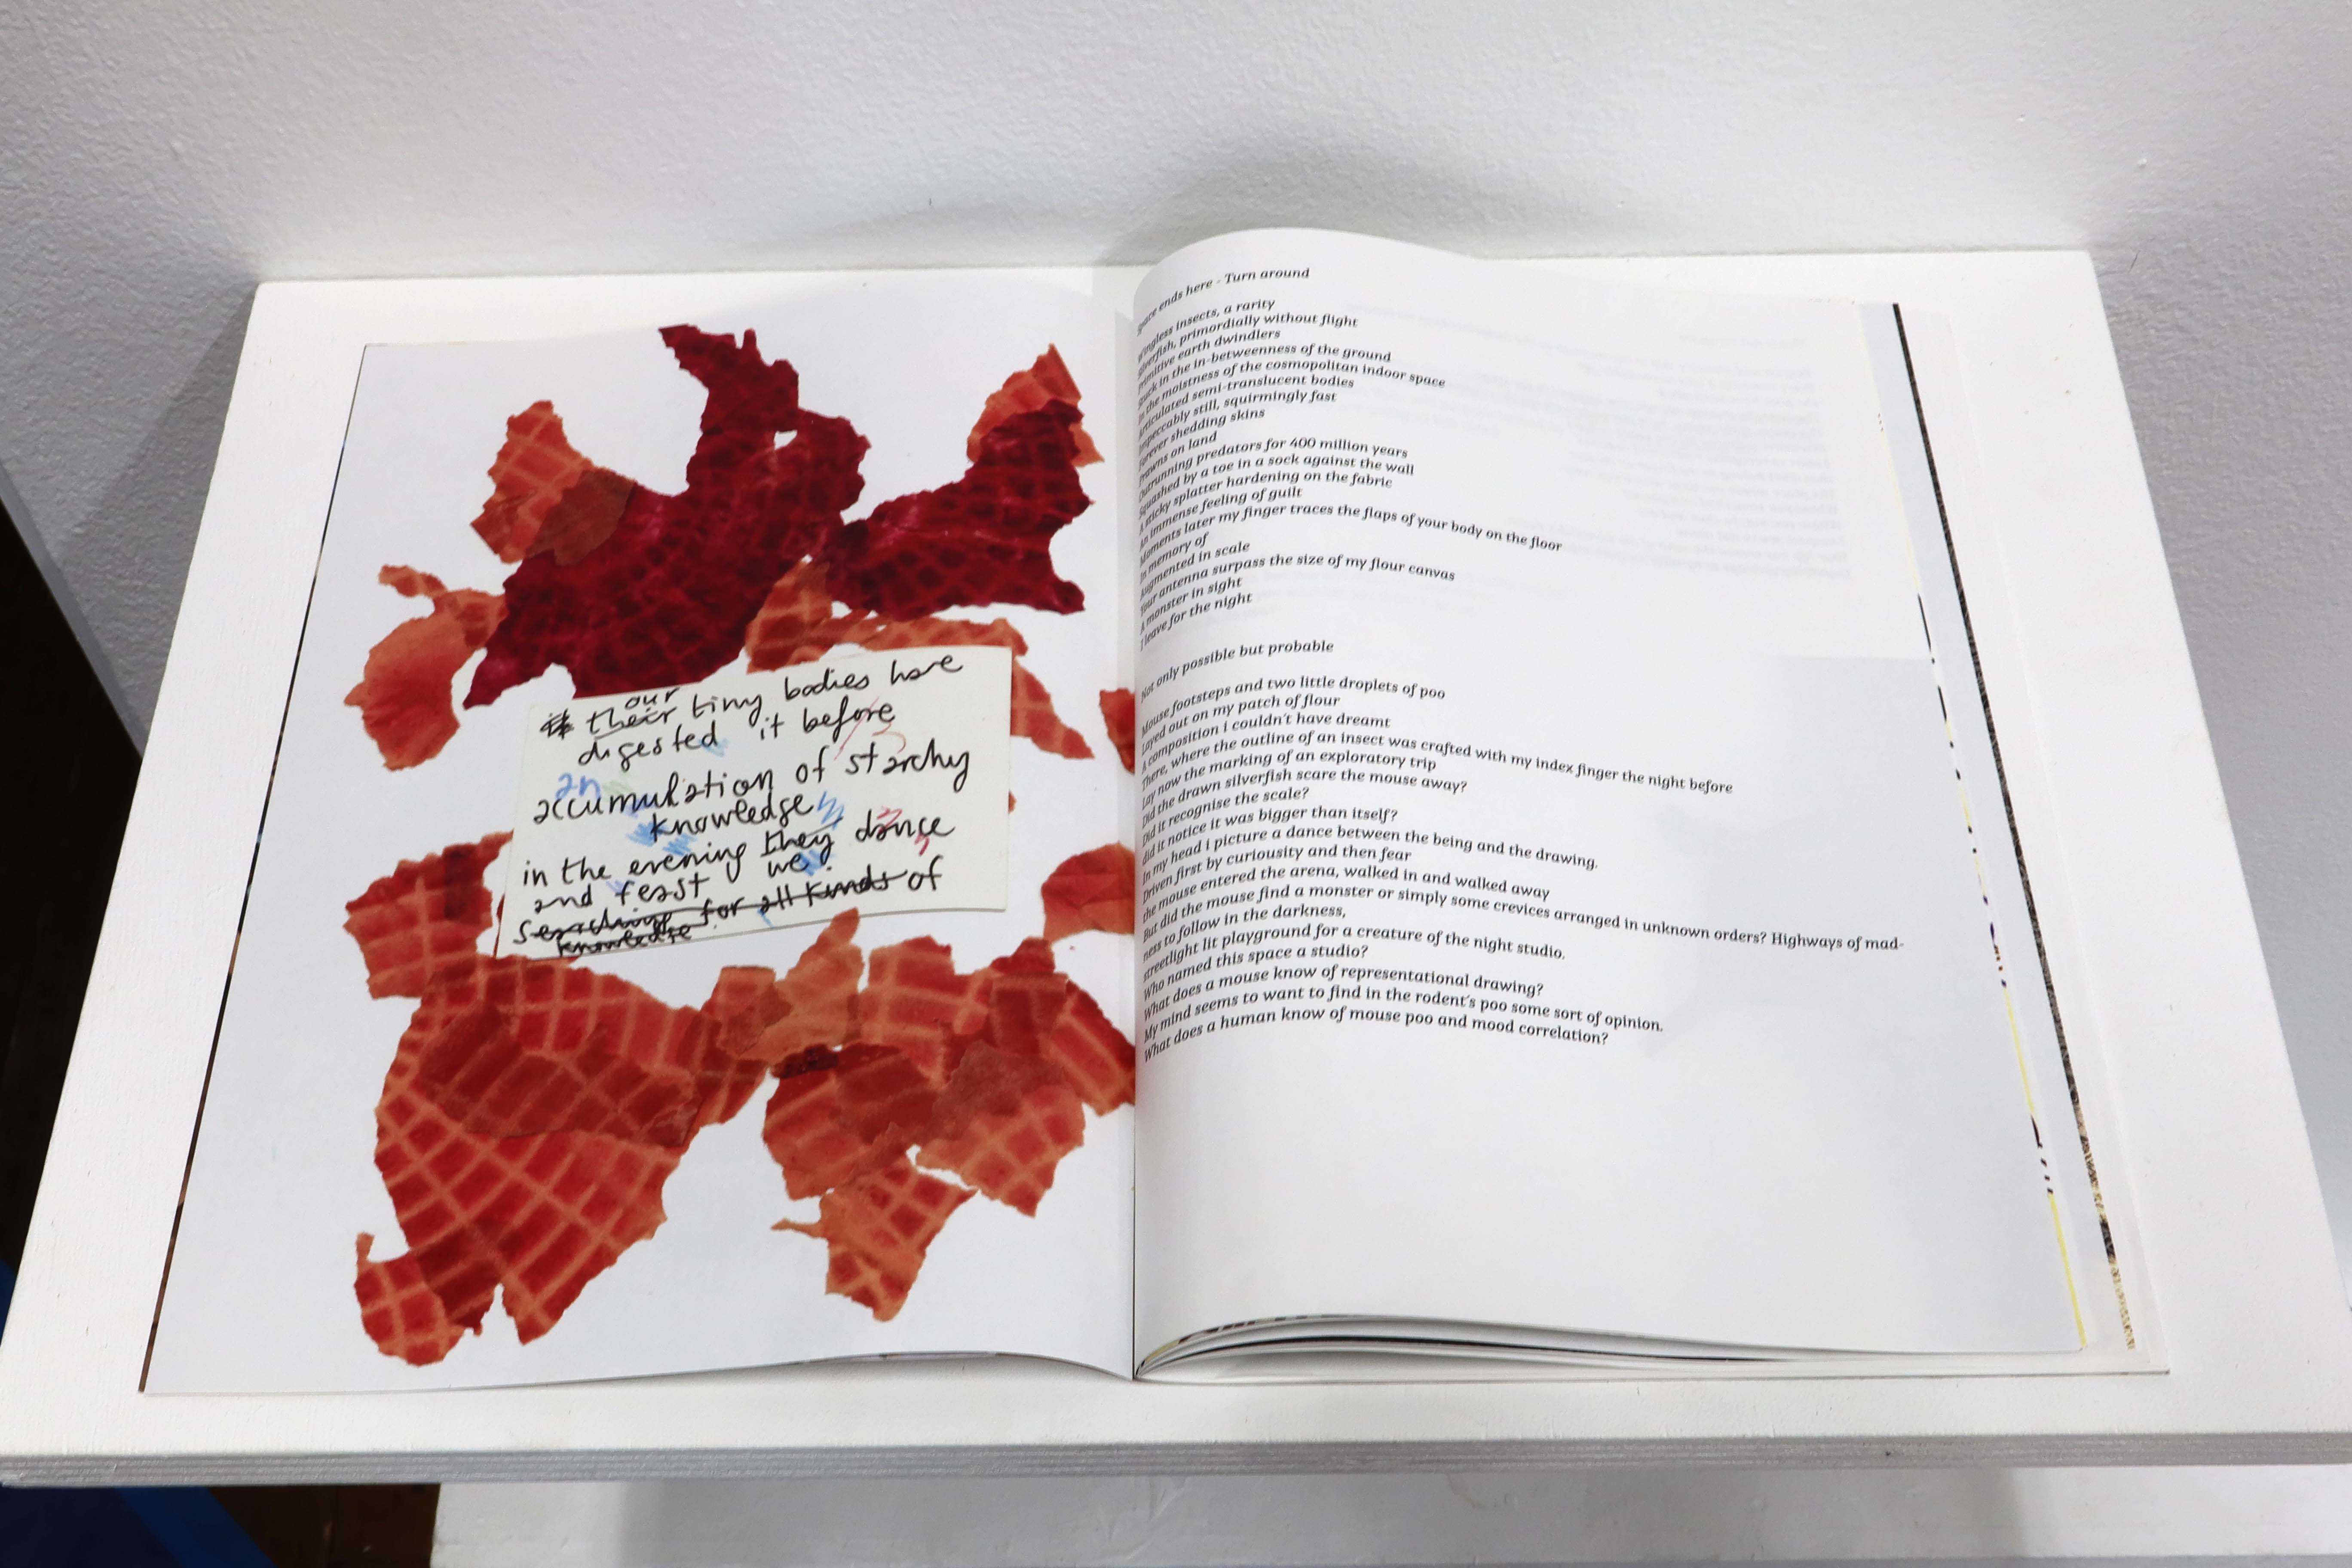 our
their tiny bodies have
digested it before
an
accumulation of starchy
knowledge
in the evening they dance
and feast we
searching for all kinds of
knowledge
Space ends here - Turn around
Wingless insects, a rarity
Silverfish, primordially without flight
Primitive earth dwindlers
Stuck in the in-betweenness of the ground
In the moistness of the cosmopolitan indoor space
Articulated semi-translucent bodies
Impeccably still, squirmingly fast
Forever shedding skins
Prawns on land
Outrunning predators for 400 million years
Squashed by a toe in a sock against the wall
A sticky splatter hardening on the fabric
An immense feeling of guilt
Moments later my finger traces the flaps of your body on the floor
In memory of
Augmented in scale
Your antenna surpass the size of my flour canvas
A monster in sight
I leave for the night
Not only possible but probable
Mouse footsteps and two little droplets of poo
Layed out on my patch of flour
A composition i couldn't have dreamt
There, where the outline of an insect was crafted with my index finger the night before
Lay now the marking of an exploratory trip
Did the drawn silverfish scare the mouse away?
Did it recognise the scale?
did it notice it was bigger than itself?
In my head i picture a dance between the being and the drawing.
Driven first by curiousity and then fear
the mouse entered the arena, walked in and walked away
But did the mouse find a monster or simply some crevices arranged in unknown orders? Highways of mad-
ness to follow in the darkness,
streetlight lit playground for a creature of the night studio.
Who named this space a studio?
What does a mouse know of representational drawing?
My mind seems to want to find in the rodent's poo some sort of opinion.
What does a human know of mouse poo and mood correlation?